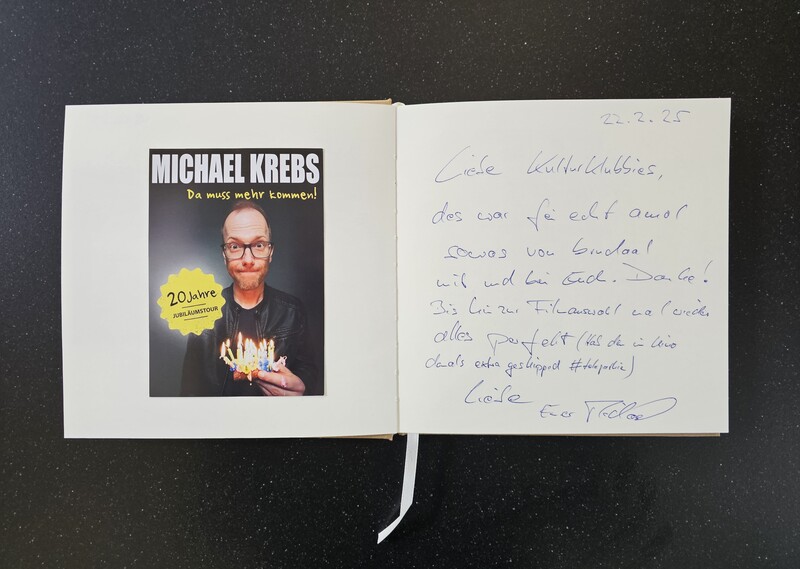 MICHAEL KREBS
Da muss mehr kommen!
20 Jahre
JUBILÄUMSTOUR
22.2.25
Liebe KulturKlubbies,
des war fei echt amol
sowas von brudaal
mit und bei Euch. Danke!
Bis hin zur Filmauswahl mal wieder
alles perfekt (Hab den im Kino
damals extra geskipped
Liebe
Euer Michael